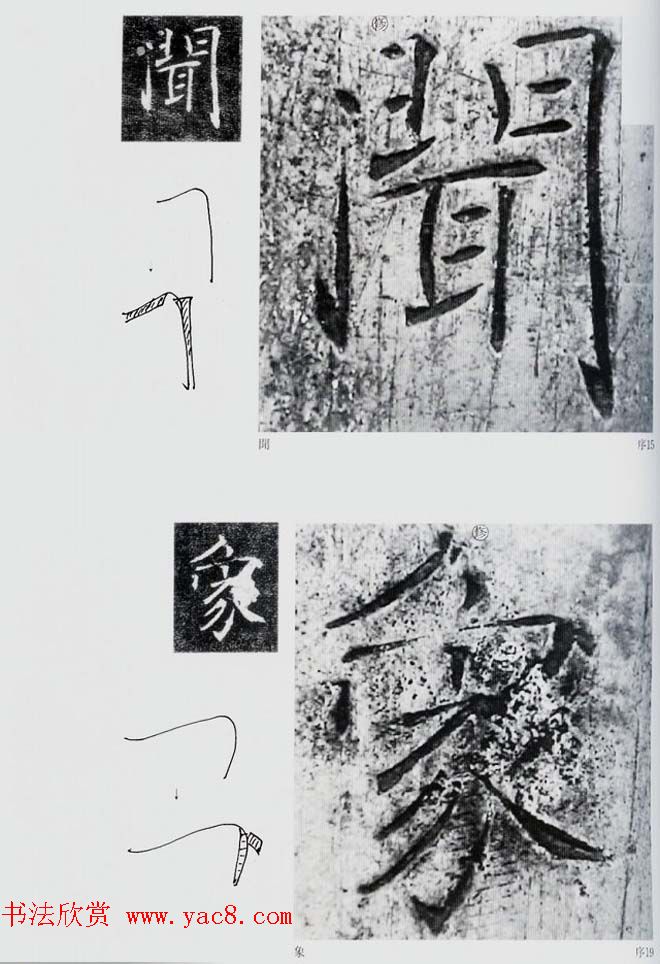 聞
修
聞
聞
序15
象
修
象
象
序19
书法欣赏 www.yac8.com